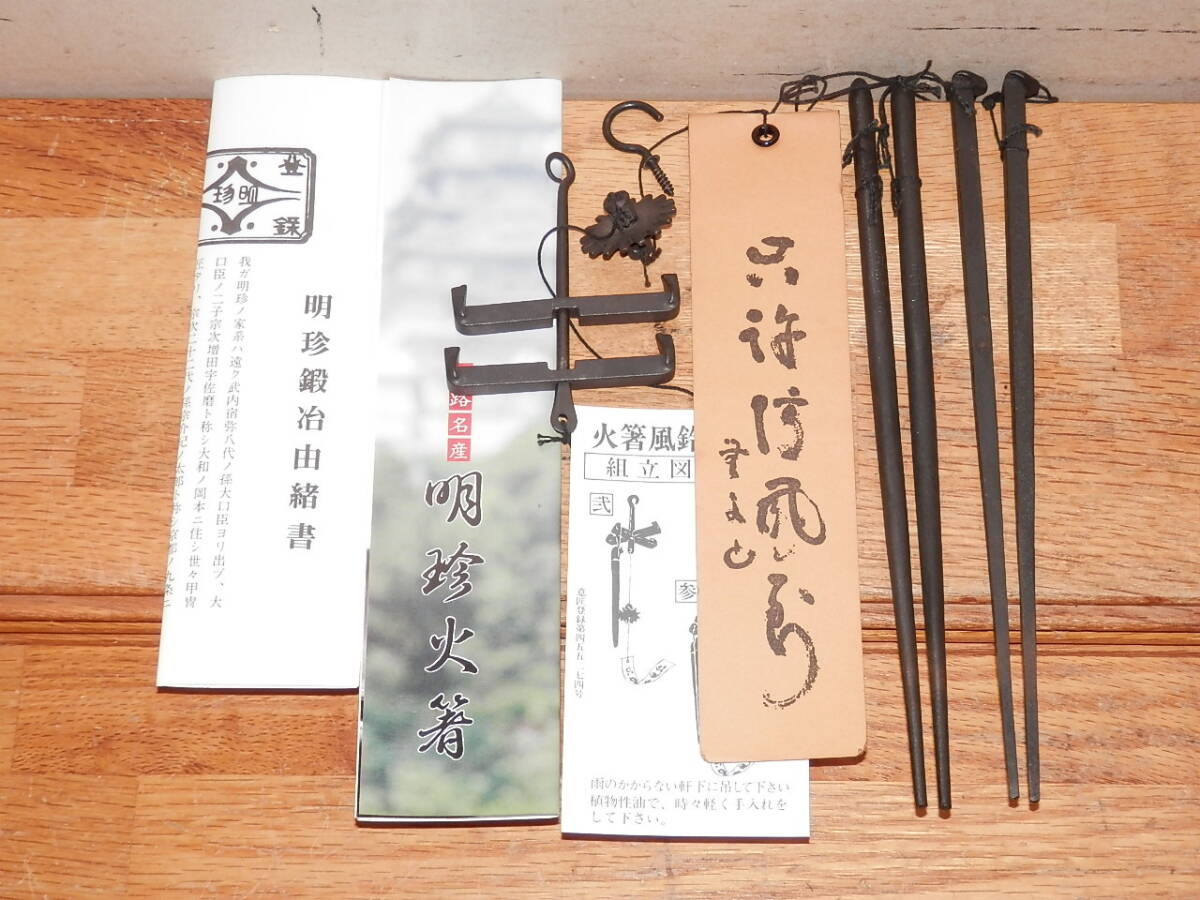 登録
明珍
明珍鍛冶由緒書
我ガ明珍ノ家系ハ遠ク武内宿弥八代ノ孫大口臣ヨリ出ブ、大
口臣ノ二子宗次増田宇佐磨ト称シ大和ノ岡本ニ住シ世々甲冑
路名産
明珍火箸
火箸風鈴
組立図
弐
参
意匠登録第四五五一七四号
雨のかからない軒下に吊して下さい
植物性油で、時々軽く手入れを
して下さい。